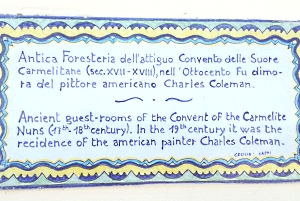 Antica Foresteria dell'attiguo Convento delle Suore
Carmelitane (sec. XVII-XVIII), nell'Ottocento Fu dimo-
ra del pittore americano Charles Coleman.
Ancient guest-rooms of the Convent of the Carmelite
Nuns (17th-18th century). In the 19th century it was the
recidence of the american painter Charles Coleman.